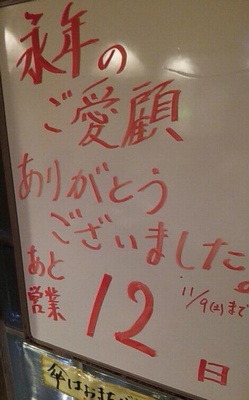 永年の
ご愛顧
ありがとう
ございました。
あと
営業12日
11/9(土)まで
傘はおまち